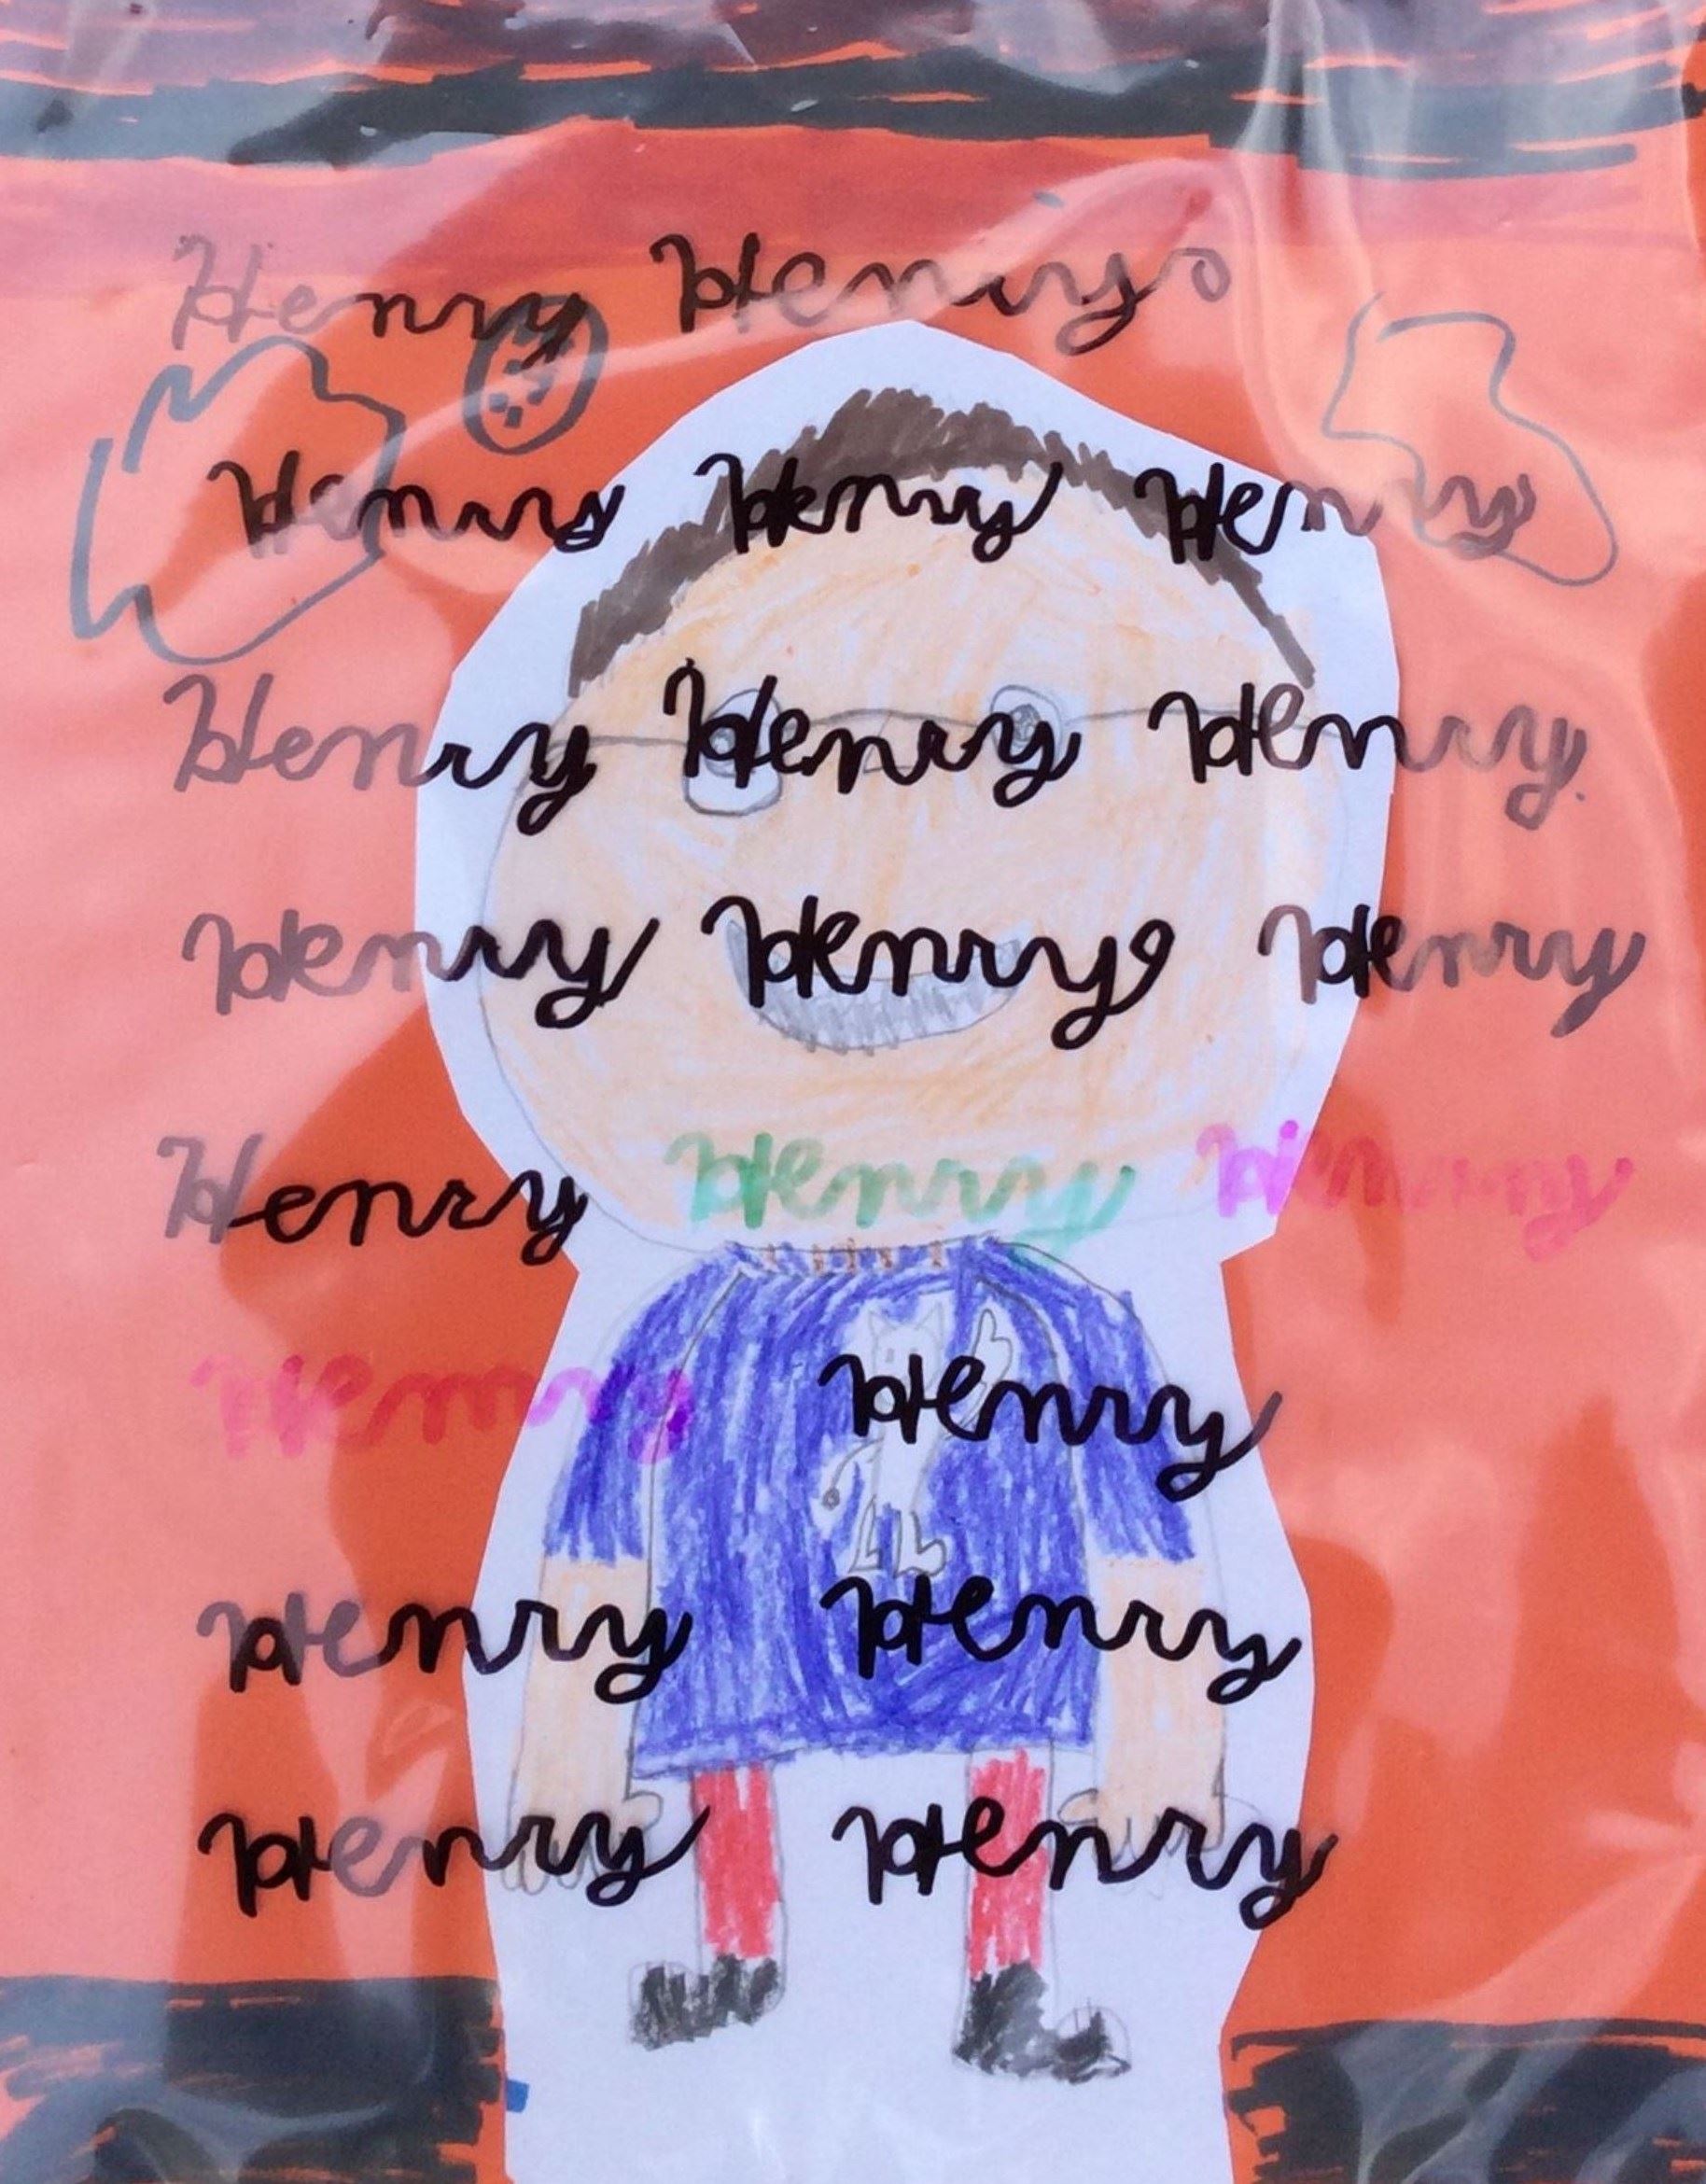 Henry Henry
Henry Henry Henry
Henry Henry Henry
Henry Henry Henry
Henry Henry Henry
Henry Henry
Henry Henry
Henry Henry